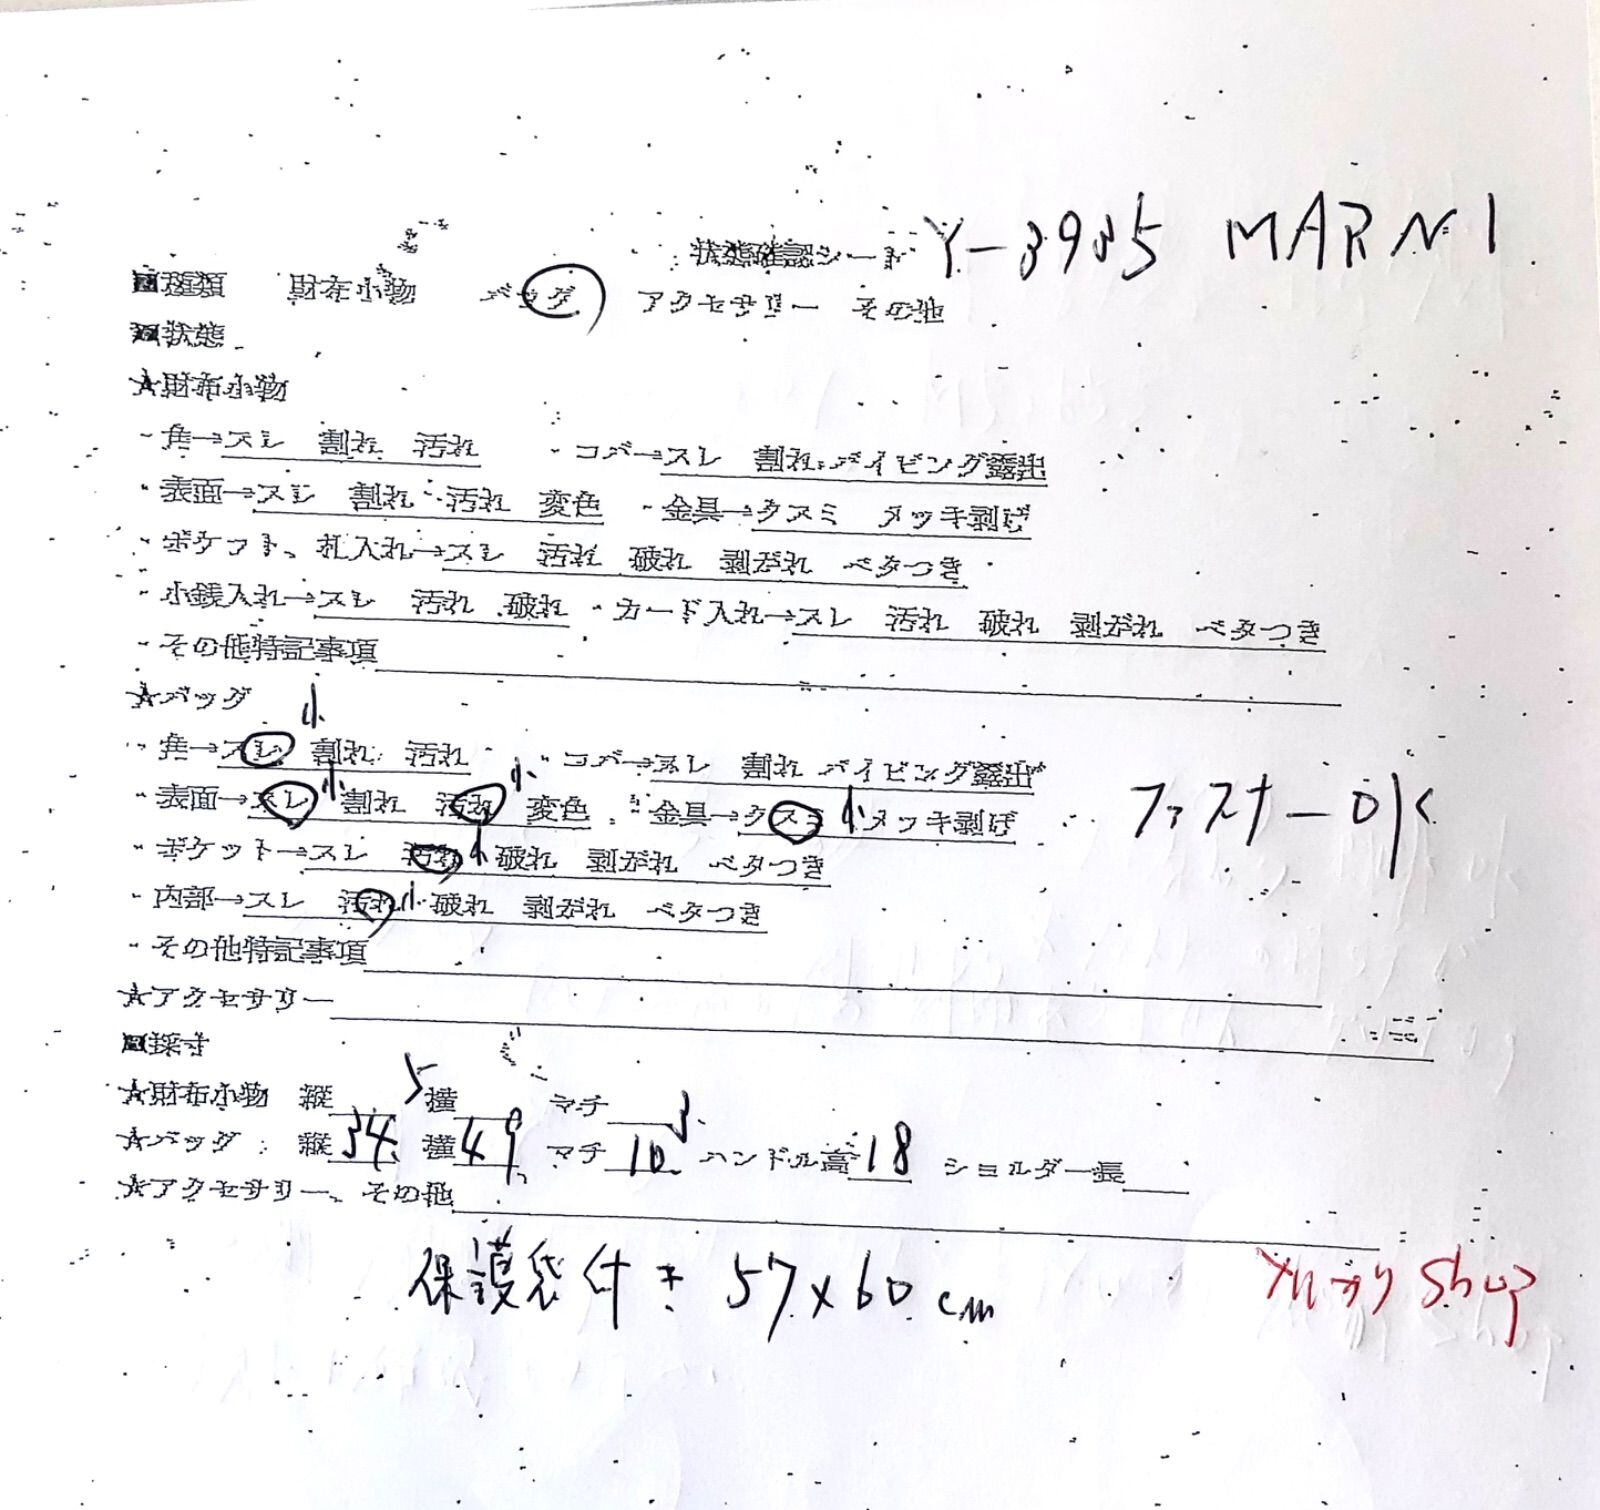 状態確認シート Y-3935 MARNI
■種類 財布小物 バッグ アクセサリー その他
■状態
★財布小物
・角→スレ 割れ 汚れ ・コバ→スレ 割れ パイピング露出
・表面→スレ 割れ 汚れ 変色 ・金具→クスミ メッキ剥げ
・ポケット、札入れ→スレ 汚れ 破れ 剥がれ ベタつき
・小銭入れ→スレ 汚れ 破れ ・カード入れ→スレ 汚れ 破れ 剥がれ ベタつき
・その他特記事項
★バッグ 小
・角→スレ 割れ 汚れ ・コバ→スレ 割れ パイピング露出
・表面→スレ 小 割れ 汚れ 小 変色 ・金具→クスミ 小 メッキ剥げ ファスナーOK
・ポケット→スレ 汚れ 小 破れ 剥がれ ベタつき
・内部→スレ 汚れ 小 破れ 剥がれ ベタつき
・その他特記事項
★アクセサリー
■採寸
★財布小物 縦 横 マチ
★バッグ 縦34.5 横49 マチ10.3 ハンドル高18 ショルダー長
★アクセサリー、その他
保護袋付き 57×60cm
Shop